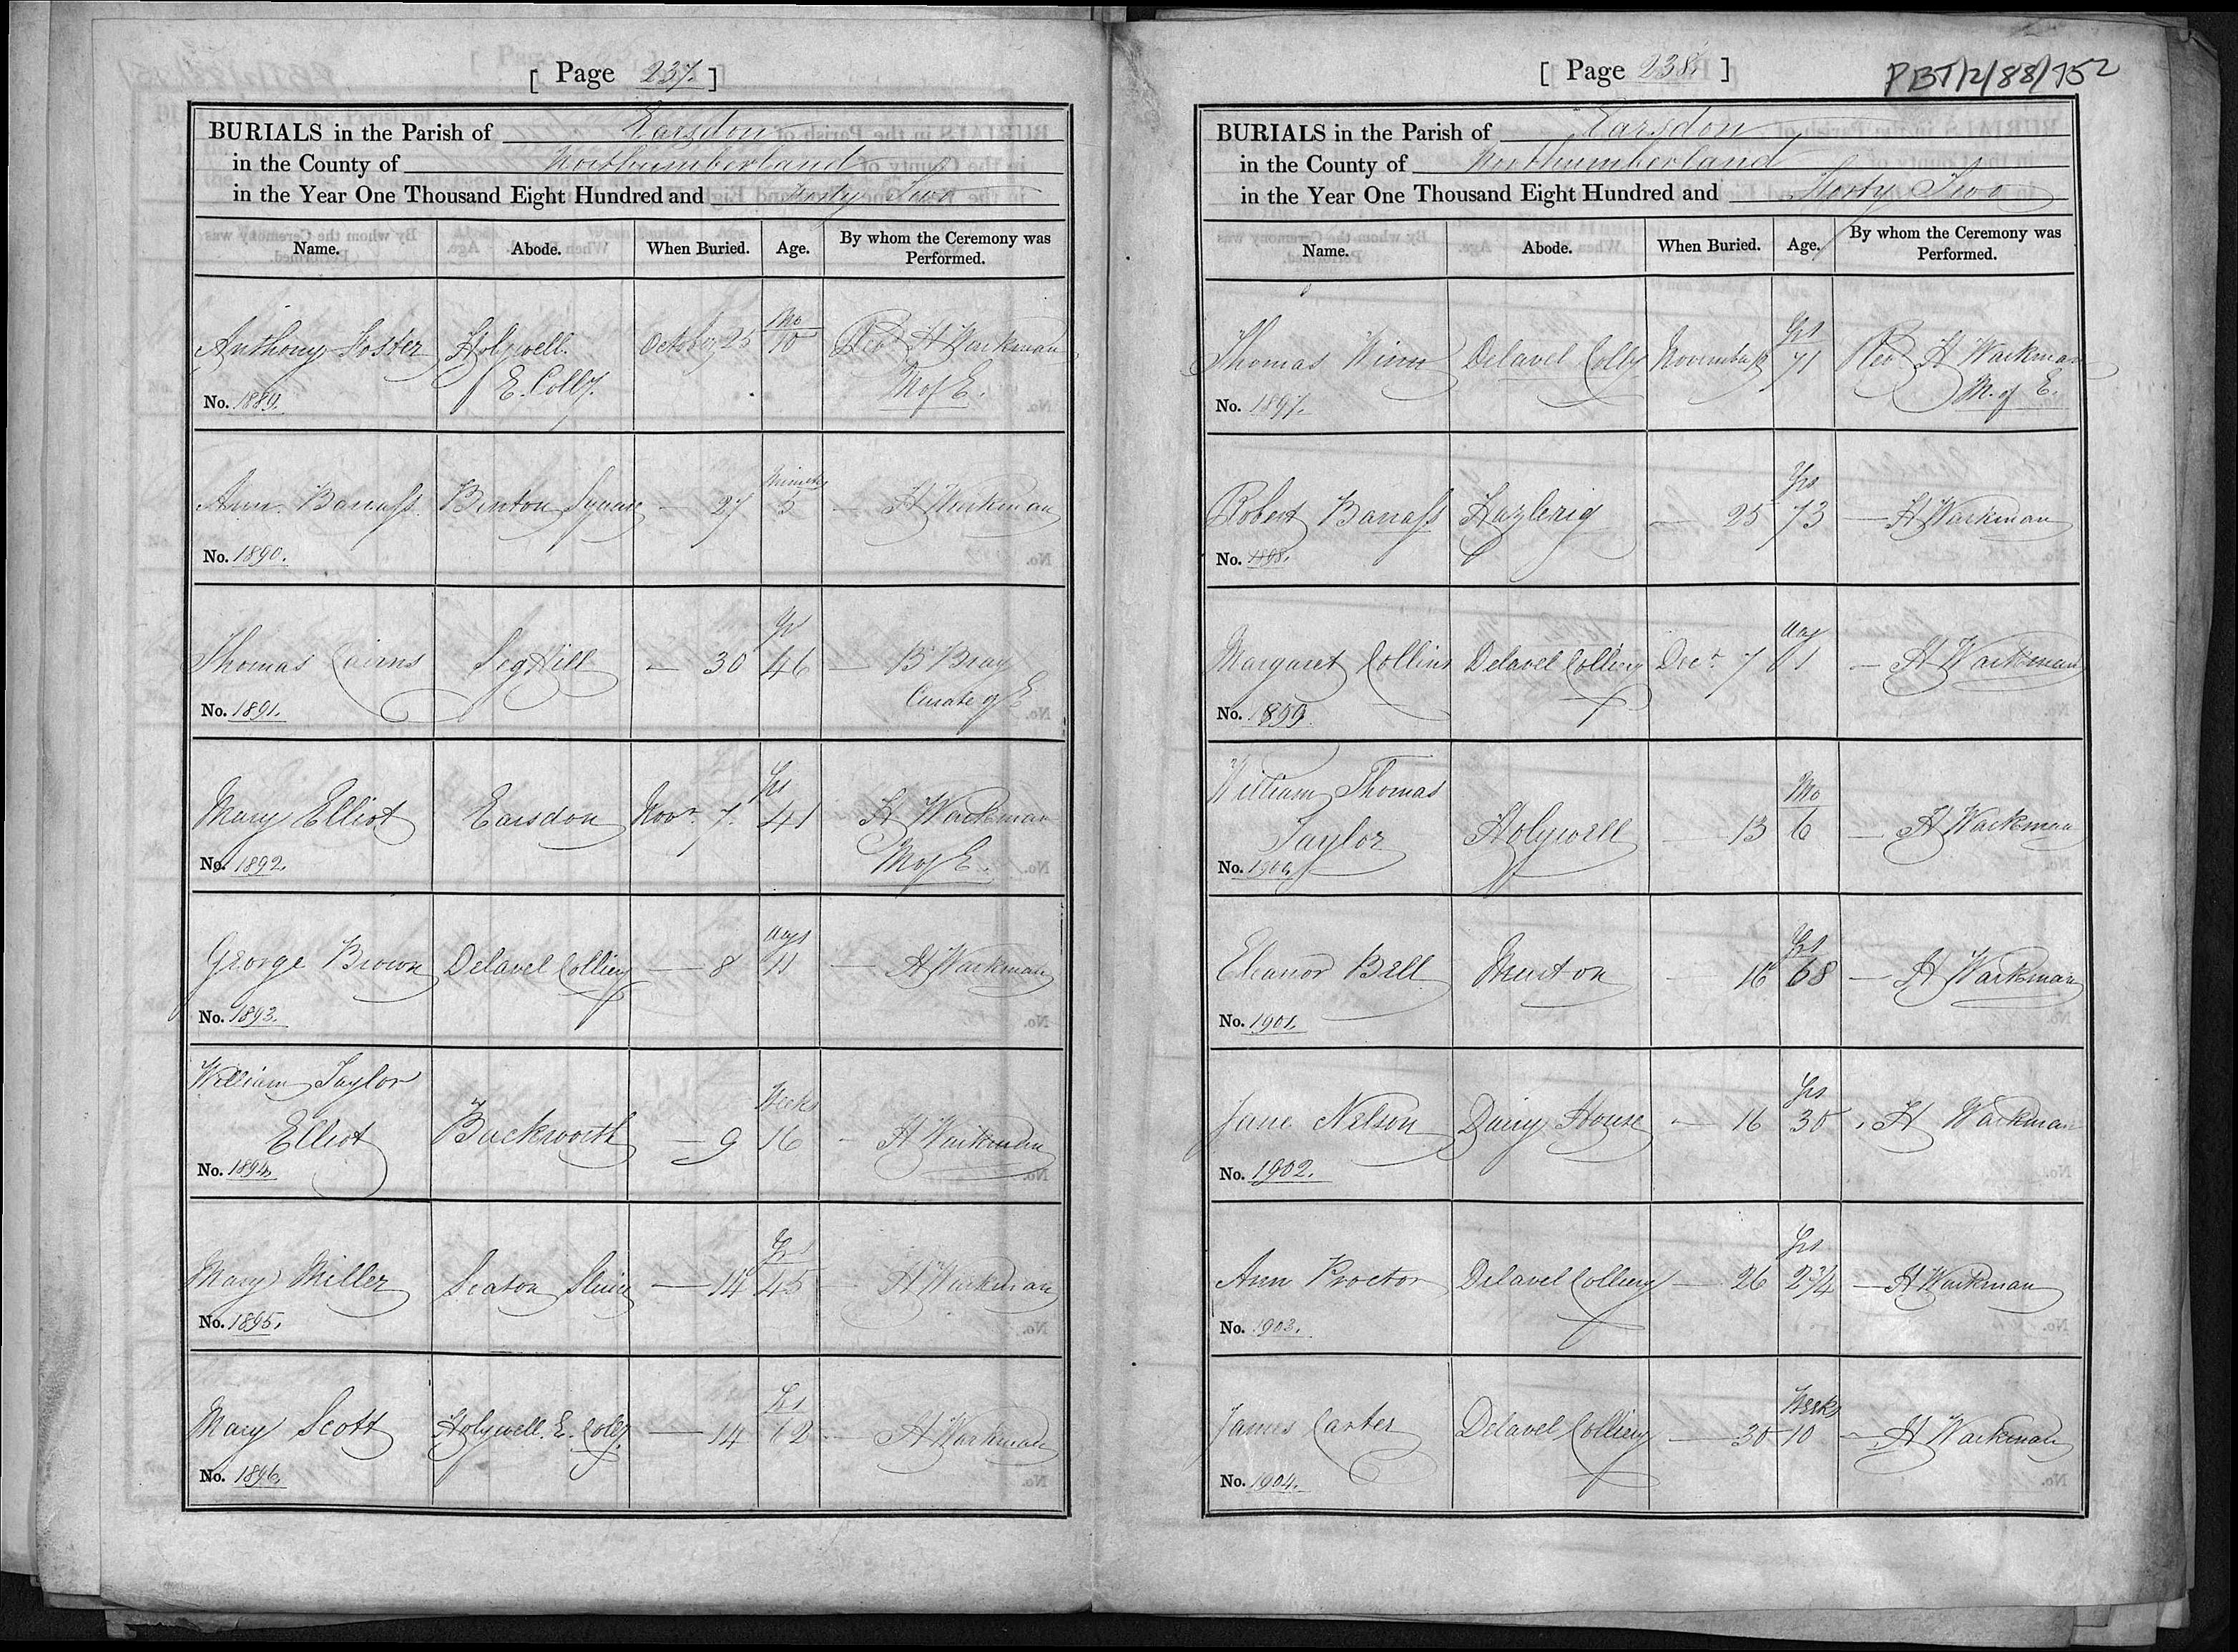 [ Page 237. ]
BURIALS in the Parish of Earsdon
in the County of Northumberland
in the Year One Thousand Eight Hundred and Forty Two
Name. Abode. When Buried. Age. By whom the Ceremony was Performed.
Anthony Foster Holywell. October 25 Mo 10 Rev H Warkman
E. Colly. M of E.
No. 1889.
Ann Barrass Benton Square — 27 Minutes 5 — H Warkman
No. 1890.
Thomas Cairns Seghill — 30 Yrs 46 — B Bray
Curate of E
No. 1891.
Mary Elliot Earsdon Novr. 7. Yrs 41 H Warkman
M of E.
No. 1892.
George Brown Delavel Colliery — 8 days 11 — H Warkman
No. 1893.
William Taylor
Elliot Backworth — 9 Weeks 16 - H Warkman
No. 1894.
Mary Miller Seaton Sluice — 14 Yrs 45 — H Warkman
No. 1895.
Mary Scott Holywell. E. Colly. — 14 Yrs 62 — H Warkman
No. 1896.
[ Page 238. ]
PBT/2/88/152
BURIALS in the Parish of Earsdon
in the County of Northumberland
in the Year One Thousand Eight Hundred and Forty Two
Name. Abode. When Buried. Age. By whom the Ceremony was Performed.
Thomas Winn Delavel Colly November Yrs 71 Rev H Warkman
M. of E.
No. 1897.
Robert Barrass Hazlerig — 25 Yrs 73 — H Warkman
No. 1898.
Margaret Collins Delavel Colliery Decr. 7 day 1 — H Warkman
No. 1899
William Thomas
Taylor Holywell — 13 Mo 6 — H Warkman
No. 1900.
Eleanor Bell Murton - 16 Yrs 68 — H Warkman
No. 1901.
Jane Nelson Dairy House — 16 Yrs 30 H Warkman
No. 1902.
Ann Proctor Delavel Colliery — 26 Yrs 2 3/4 — H Warkman
No. 1903.
James Carter Delavel Colliery — 30 Weeks 10 — H Warkman
No. 1904.